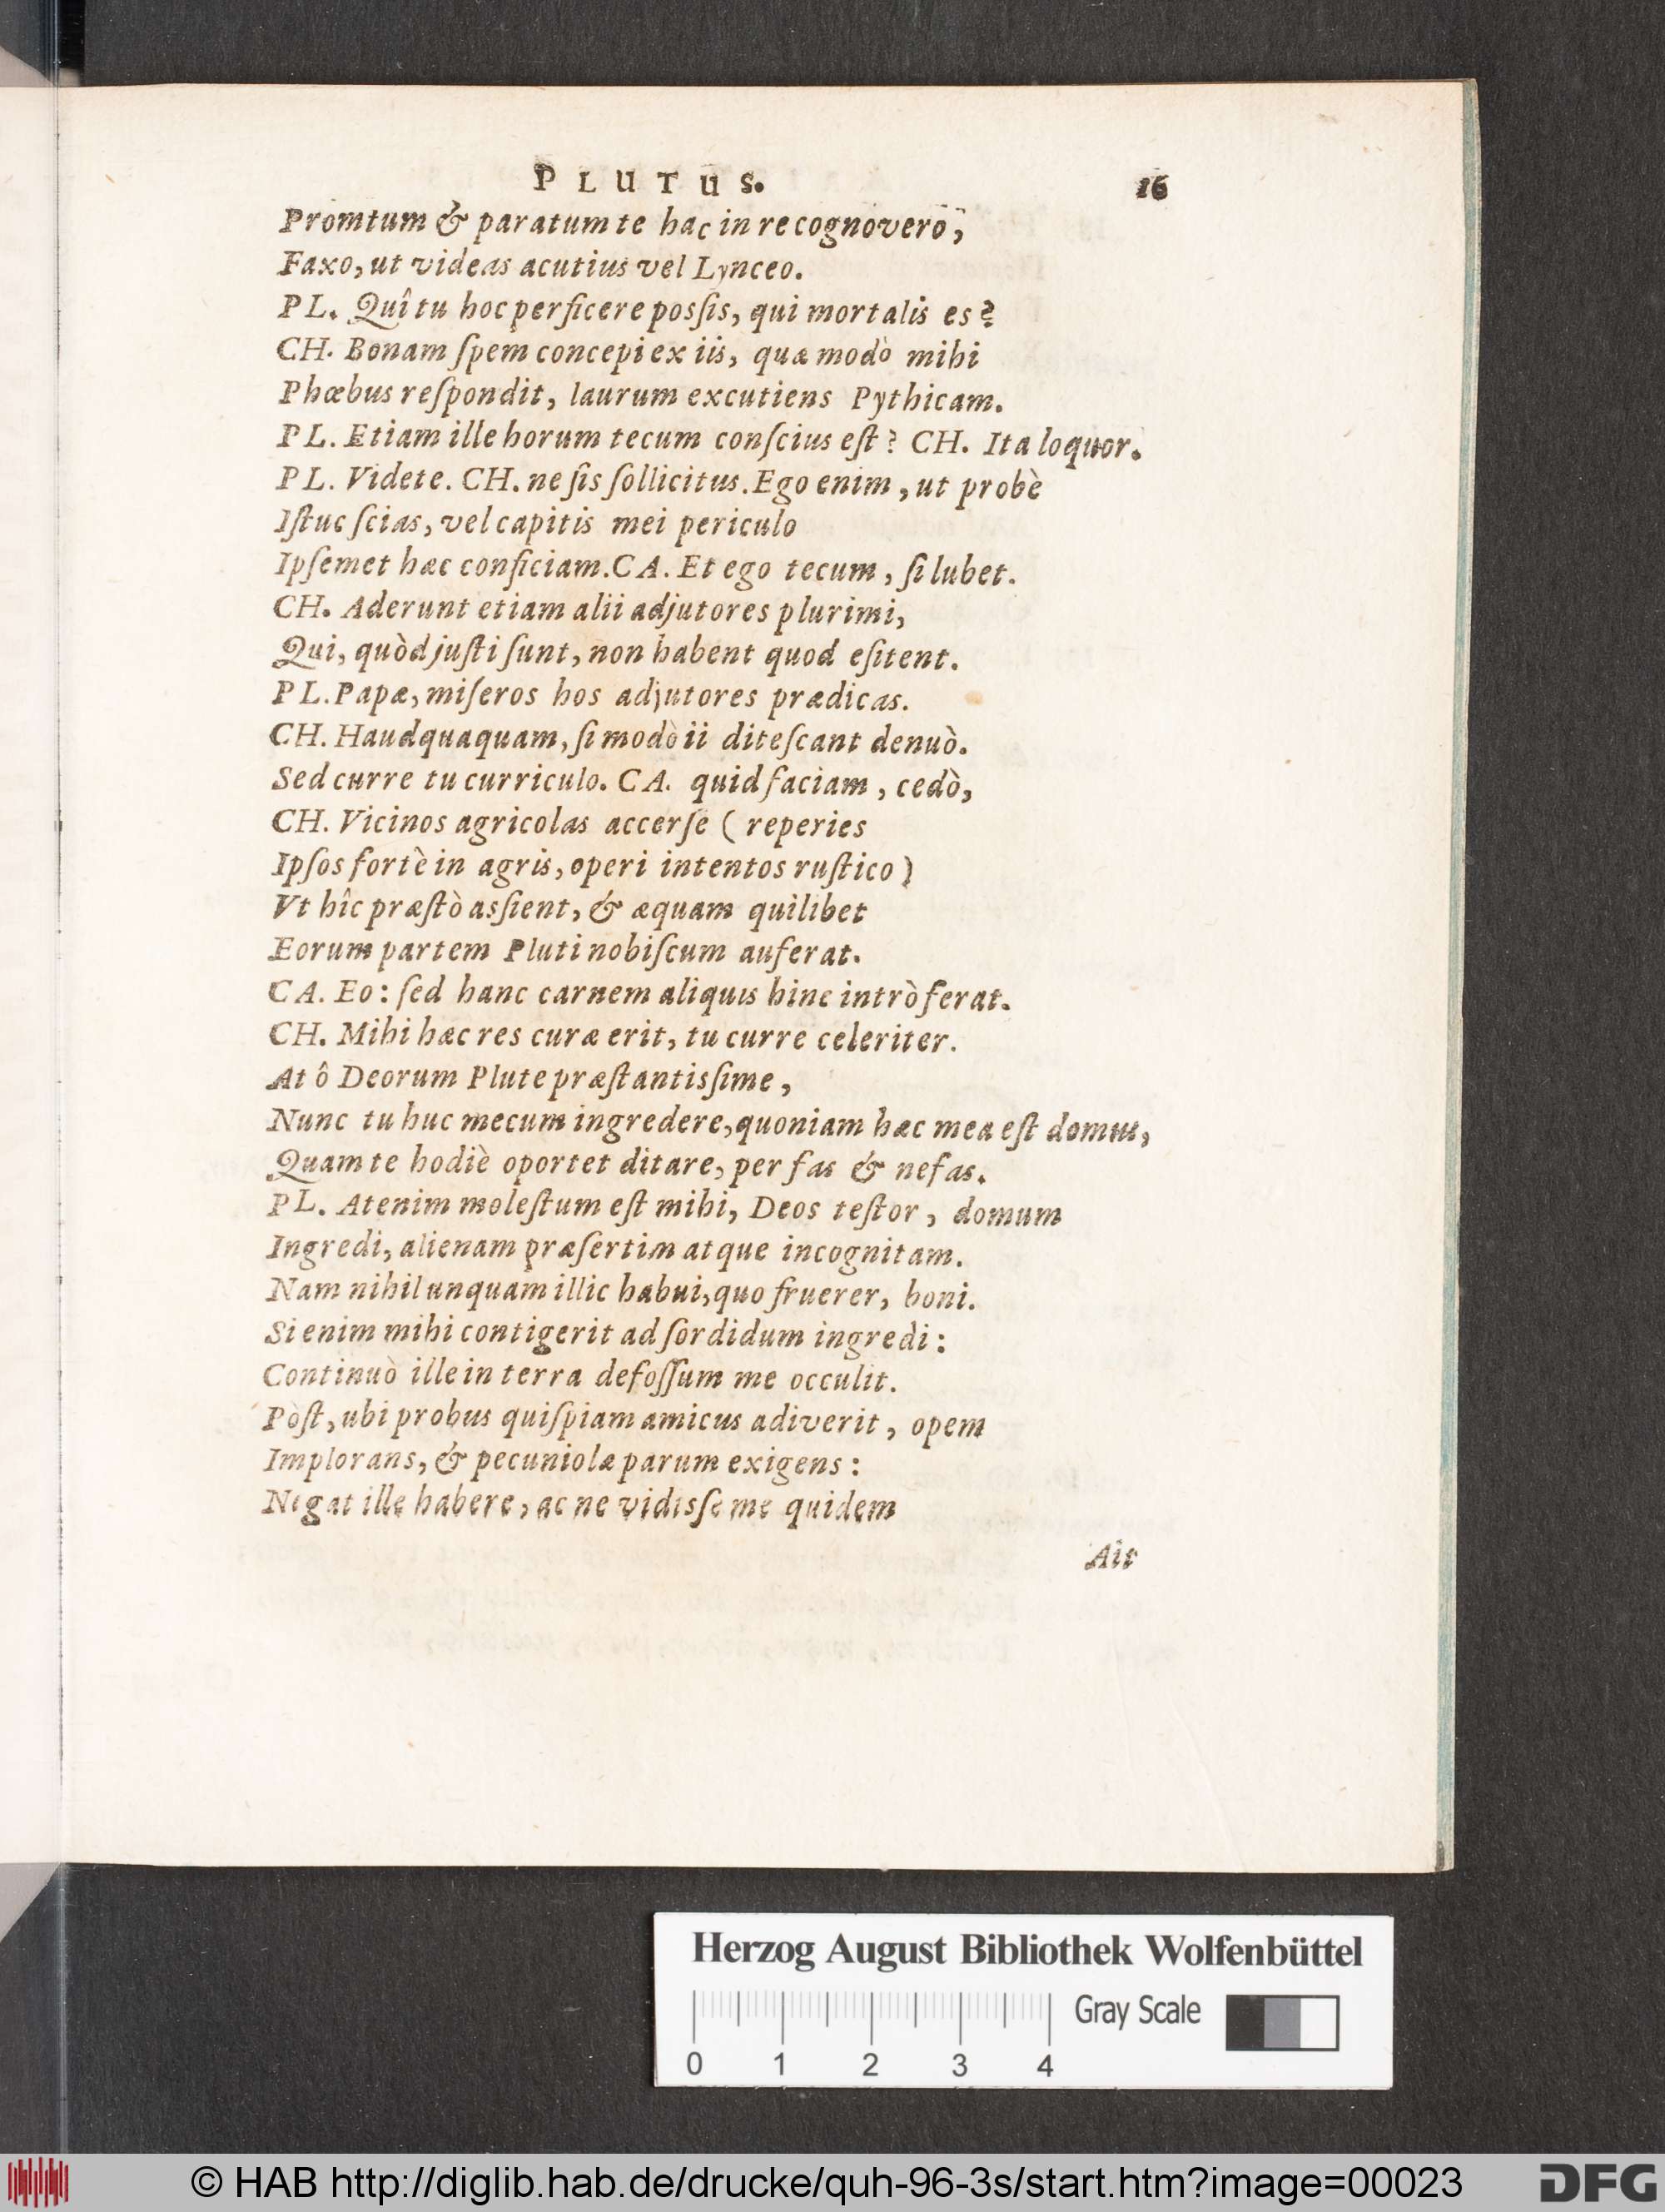 PLUTUS. 16
Promtum & paratum te hac in re cognovero,
Faxo, ut videas acutius vel Lynceo.
PL. Quî tu hoc perficere posſis, qui mortalis es?
CH. Bonam ſpem concepi ex iis, quæ modò mihi
Phœbus reſpondit, laurum excutiens Pythicam.
PL. Etiam ille horum tecum conſcius eſt? CH. Ita loquor.
PL. Videte. CH. ne ſis ſollicitus. Ego enim, ut probè
Iſtuc ſcias, vel capitis mei periculo
Ipſemet hæc conficiam. CA. Et ego tecum, ſi lubet.
CH. Aderunt etiam alii adjutores plurimi,
Qui, quòd juſti ſunt, non habent quod eſitent.
PL. Papæ, miſeros hos adjutores prædicas.
CH. Haudquaquam, ſi modò ii diteſcant denuò.
Sed curre tu curriculo. CA. quid faciam, cedò,
CH. Vicinos agricolas accerſe ( reperies
Ipſos fortè in agris, operi intentos ruſtico)
Vt hîc præſtò asſient, & æquam quilibet
Eorum partem Pluti nobiſcum auferat.
CA. Eo: ſed hanc carnem aliquis hinc intrò ferat.
CH. Mihi hæc res curæ erit, tu curre celeriter.
At ô Deorum Plute præſtantisſime,
Nunc tu huc mecum ingredere, quoniam hæc mea eſt domus,
Quam te hodiè oportet ditare, per fas & nefas.
PL. At enim moleſtum eſt mihi, Deos teſtor, domum
Ingredi, alienam præſertim atque incognitam.
Nam nihil unquam illic habui, quo fruerer, boni.
Si enim mihi contigerit ad ſordidum ingredi:
Continuò ille in terra defoſſum me occulit.
Pòſt, ubi probus quiſpiam amicus adiverit, opem
Implorans, & pecuniolæ parum exigens:
Negat ille habere, ac ne vidisſe me quidem
Ait
Herzog August Bibliothek Wolfenbüttel
Gray Scale
0 1 2 3 4
© HAB http://diglib.hab.de/drucke/quh-96-3s/start.htm?image=00023
DFG